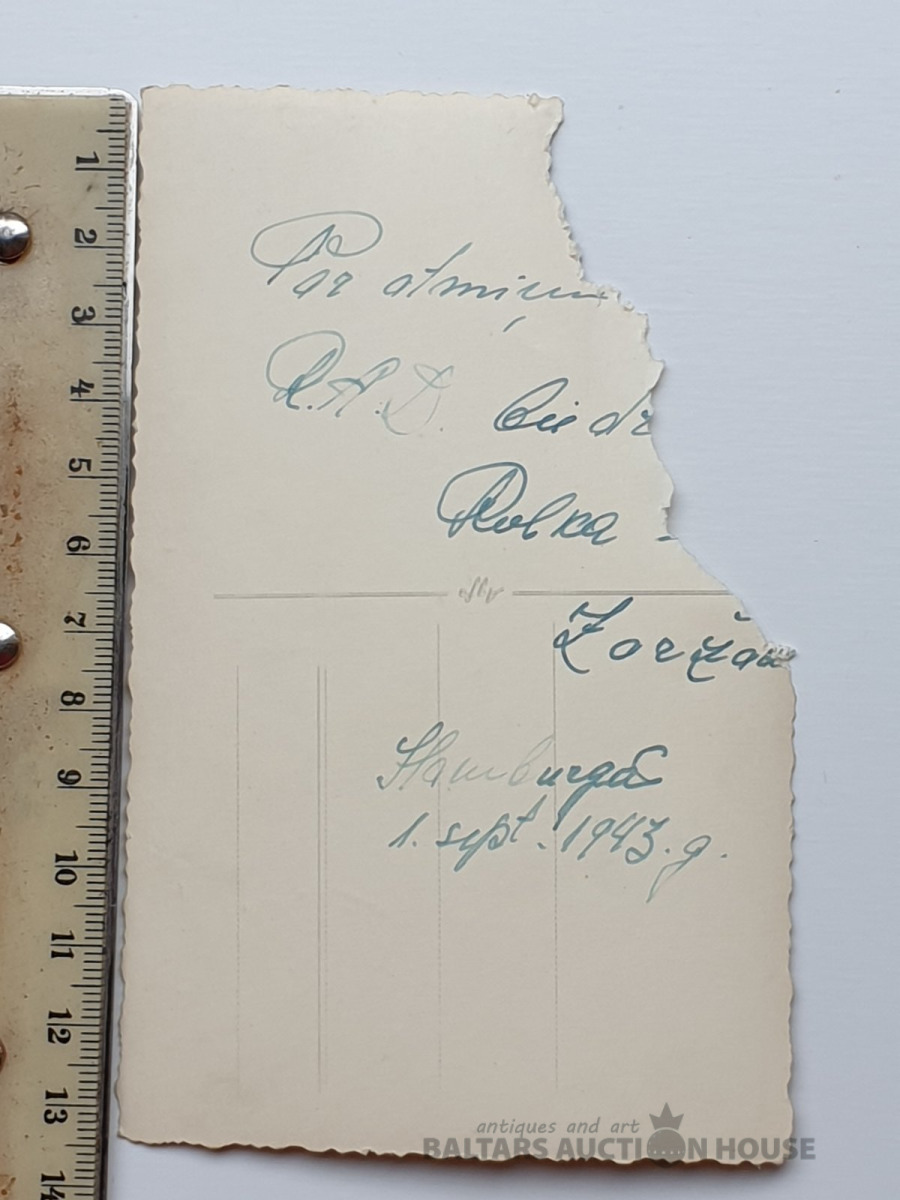 Par atmiņu
R.A.D. biedr
Rolka -
Agfa
Zoržam
Hamburgā
1. sept. 1943.g.
1
2
3
4
5
6
7
8
9
10
11
12
13
14
antiques and art
BALTARS AUCTION HOUSE